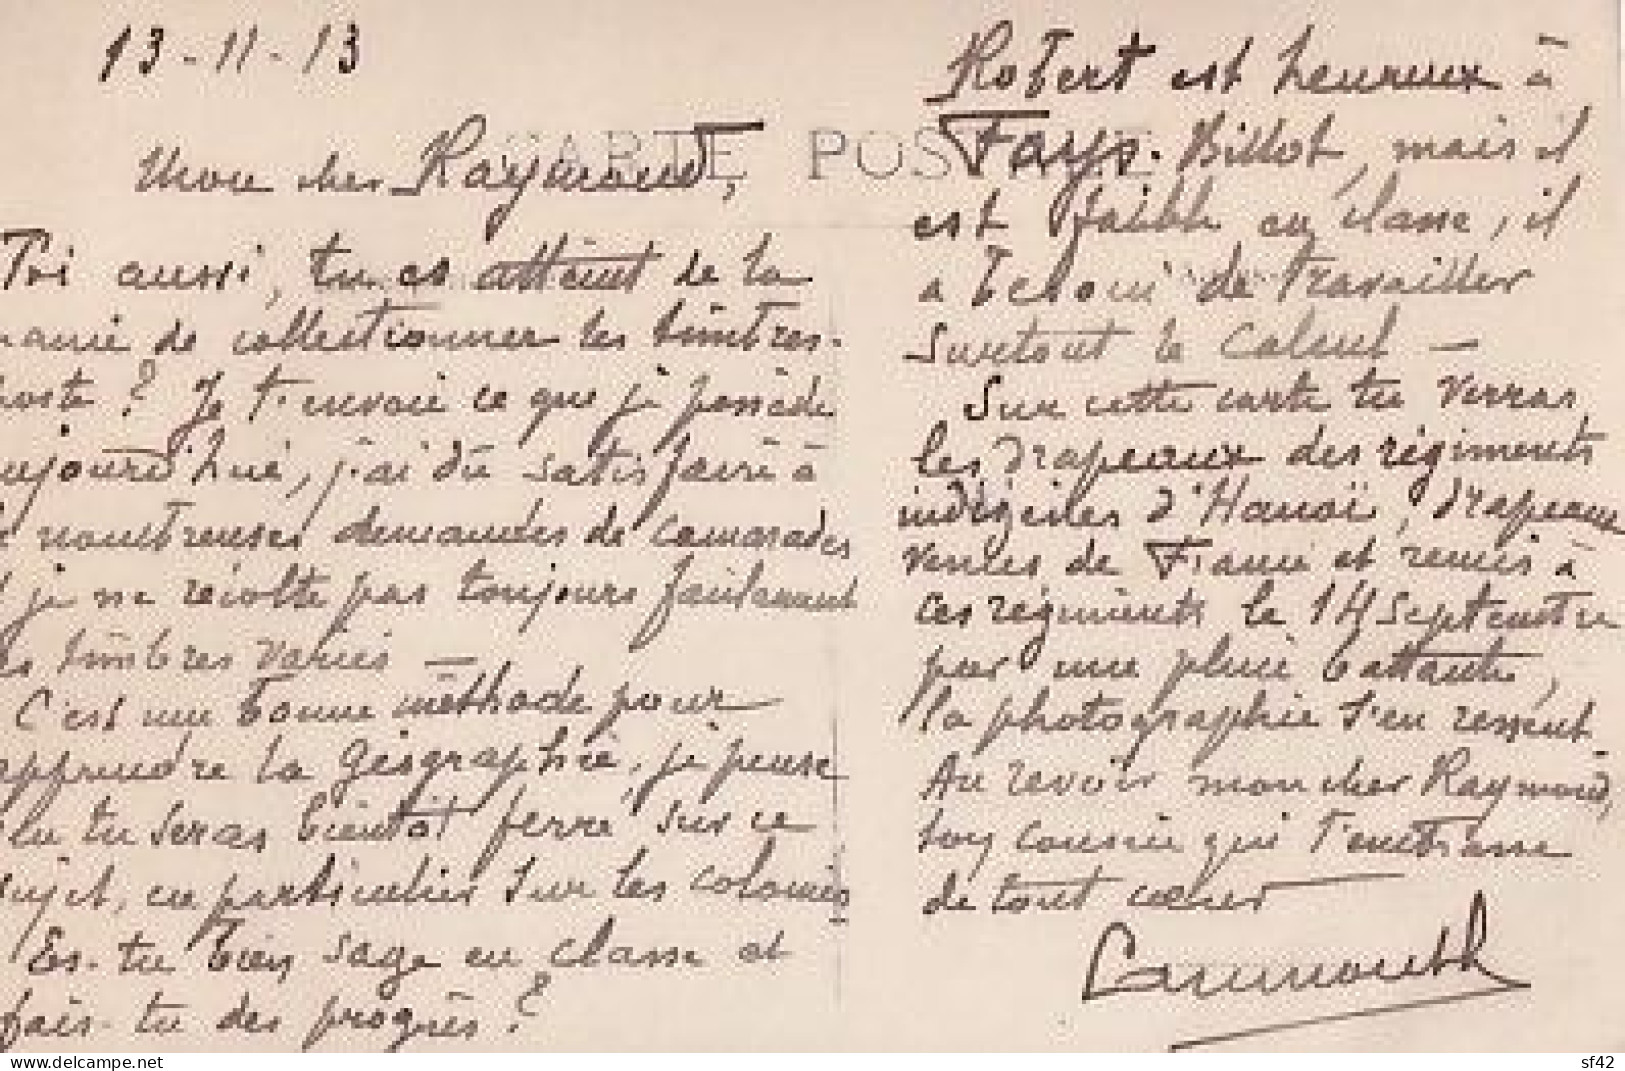 13-11-13
CARTE POSTALE
Mon cher Raymond,
Toi aussi, tu es atteint de la
manie de collectionner les timbres-
poste ? Je t'envoie ce que je possède
aujourd'hui, j'ai dû satisfaire à
de nombreuses demandes de camarades
et je ne récolte pas toujours facilement
des timbres variés —
C'est une bonne méthode pour
apprendre la géographie, je pense
que tu seras bientôt ferré sur ce
sujet, en particulier sur les colonies
Es-tu bien sage en classe et
fais-tu des progrès ?
Robert est heureux à
Fays-Billot, mais il
est faible en classe, il
a besoin de travailler
surtout le calcul —
Sur cette carte tu verras
les drapeaux des régiments
indigènes d'Hanoï, drapeaux
venus de France et remis à
ces régiments le 14 Septembre
par une pluie battante,
la photographie s'en ressent.
Au revoir mon cher Raymond,
ton cousin qui t'embrasse
de tout cœur
sf42